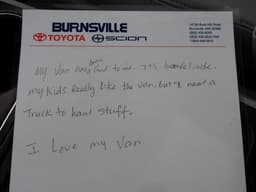 BURNSVILLE
TOYOTA SCION
My Van has been Good to me. Its
my kids Really like the van, but I need a
Truck to haul stuff.
I Love my Van